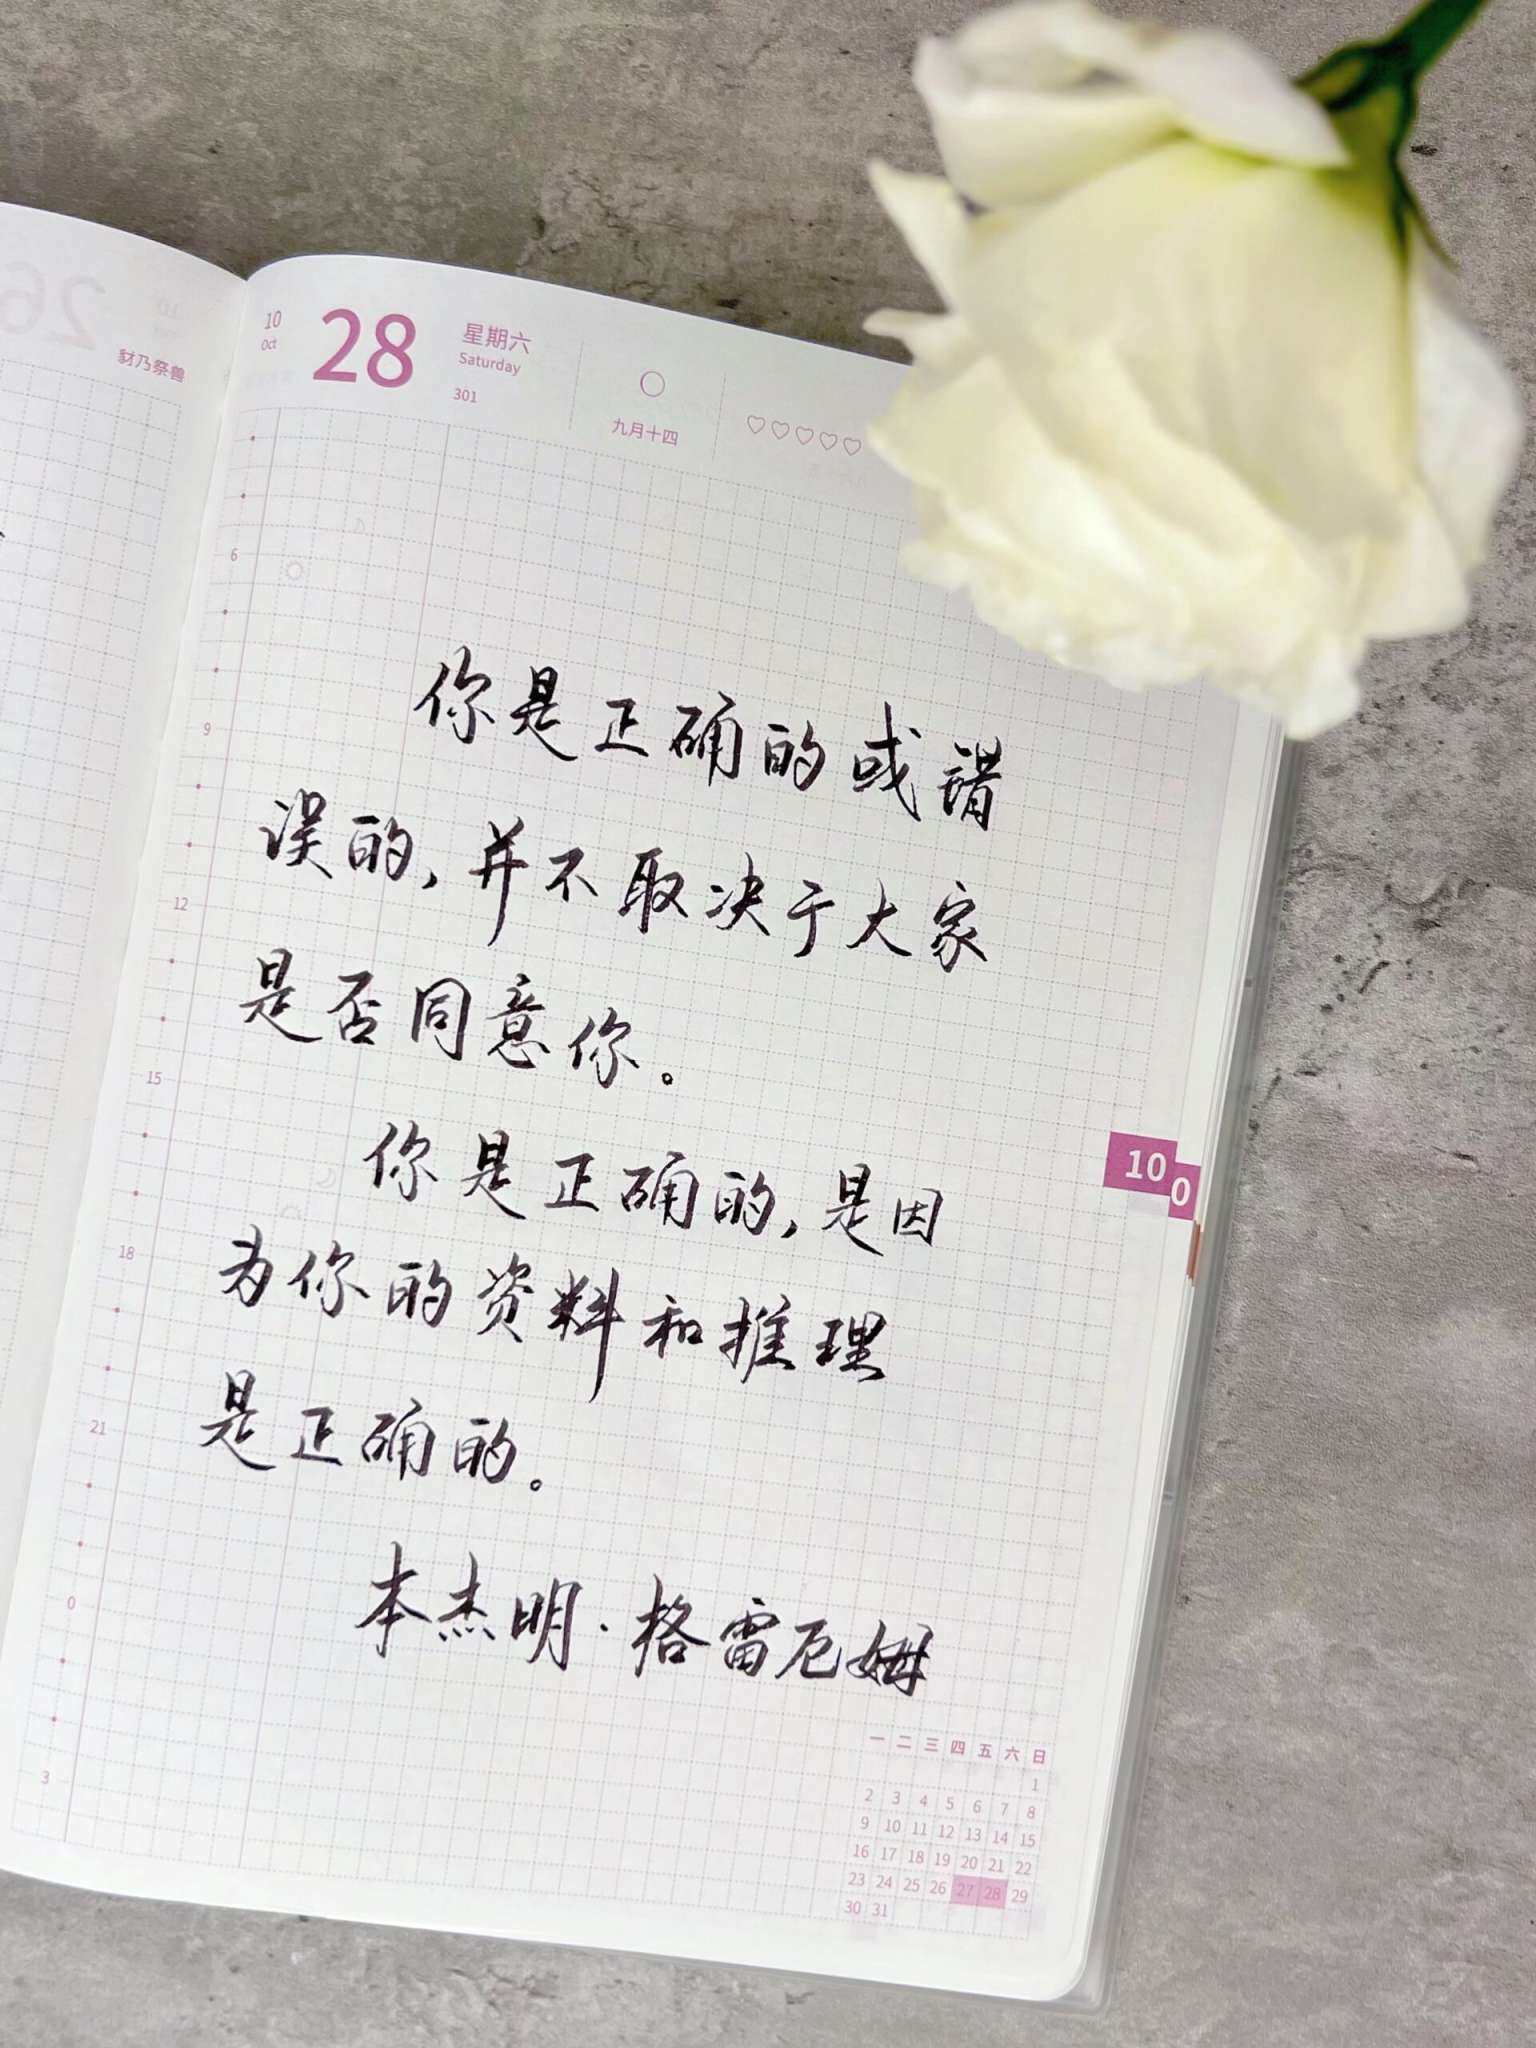 26
豺乃祭兽
10
Oct
28
星期六
Saturday
301
九月十四
6
9
12
15
18
21
0
3
你是正确的或错
误的，并不取决于大家
是否同意你。
你是正确的，是因
为你的资料和推理
是正确的。
本杰明·格雷厄姆
10
0
一 二 三 四 五 六 日
1
2 3 4 5 6 7 8
9 10 11 12 13 14 15
16 17 18 19 20 21 22
23 24 25 26 27 28 29
30 31